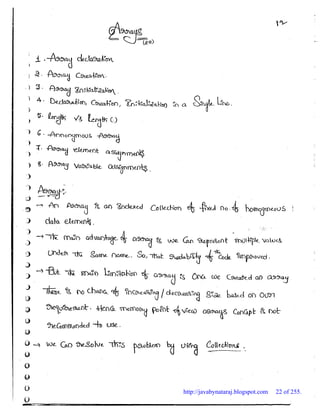 Arrays
(20)
1. Array declaration.
2. Array Creation.
3. Array Initialization.
4. Declaration Creation, Initialization in a Single Line.
5. length v/s length()
6. Annonymous Array
7. Array element assignments.
8. Array Variable assignments.
Array:
→ An Array is an Indexed Collection of fixed no of homogeneous
data elements.
→ The main advantage of array is we Can represent multiple values
Under the Same name. So, that readability of the Code improved.
→ But the main limitation of array is Once we Created an array
There is no chance of increasing/decreasing Size based on our
requirement. Hence memory Point of view arrays Concept is not
recommended to use.
→ We Can resolve this problem by using Collections.
http://javabynataraj.blogspot.com 22 of 255.